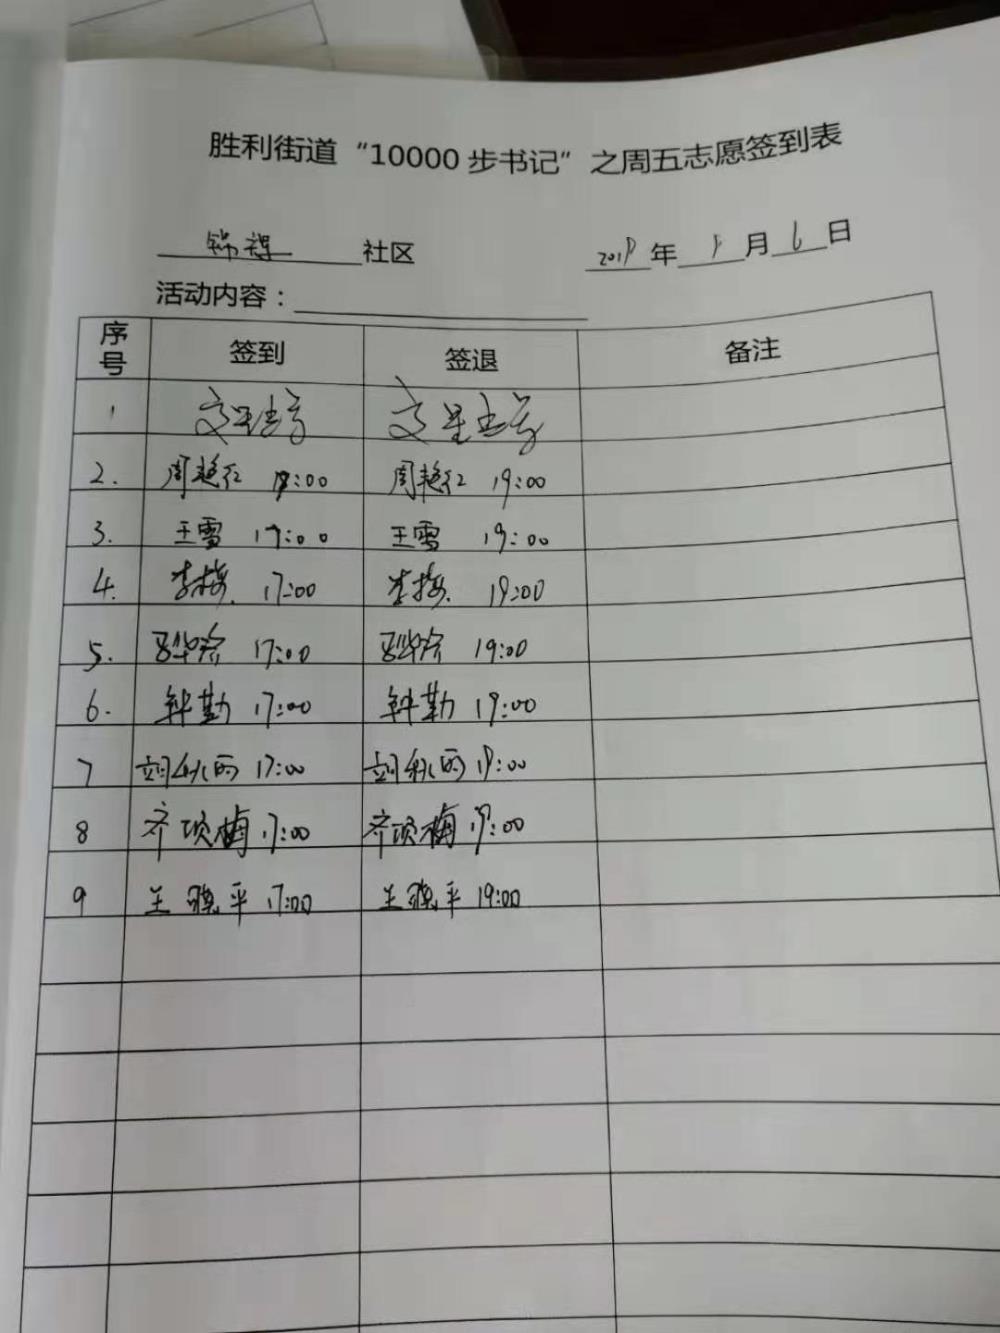 胜利街道“10000步书记”之周五志愿签到表
锦 社区 201 年 月 6 日
活动内容：
序号 签到 签退 备注
1
2. 周艳红 17:00 周艳红 19:00
3. 王雪 17:00 王雪 19:00
4. 李梅 17:00 李梅 19:00
5. 17:00 19:00
6. 钟勤 17:00 钟勤 19:00
7 17:00 19:00
8 齐项梅 17:00 齐项梅 19:00
9 王晓平 17:00 王晓平 19:00